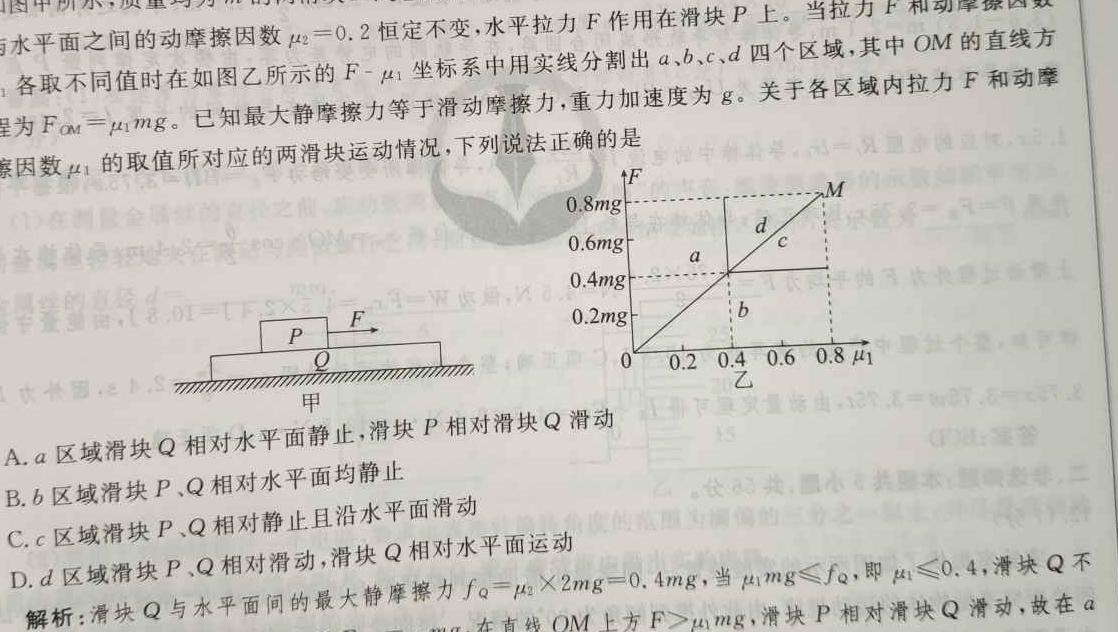 与水平面之间的动摩擦因数 μ₂=0.2 恒定不变,水平拉力 F 作用在滑块 P 上。当拉力 F 和动摩擦因数
各取不同值时在如图乙所示的 F-μ₁ 坐标系中用实线分割出 a、b、c、d 四个区域,其中 OM 的直线方
程为 F_OM=μ₁mg。已知最大静摩擦力等于滑动摩擦力,重力加速度为 g。关于各区域内拉力 F 和动摩
擦因数 μ₁ 的取值所对应的两滑块运动情况,下列说法正确的是
F
0.8mg
M
0.6mg
d
c
a
0.4mg
0.2mg
b
0
0.2
0.4
0.6
0.8
μ₁
乙
P
F
Q
甲
A. a 区域滑块 Q 相对水平面静止,滑块 P 相对滑块 Q 滑动
B. b 区域滑块 P、Q 相对水平面均静止
C. c 区域滑块 P、Q 相对静止且沿水平面滑动
D. d 区域滑块 P、Q 相对滑动,滑块 Q 相对水平面运动
解析:滑块 Q 与水平面间的最大静摩擦力 f_Q=μ₂×2mg=0.4mg,当 μ₁mg≤f_Q,即 μ₁≤0.4,滑块 Q 不
在直线 OM 上方 F>μ₁mg,滑块 P 相对滑块 Q 滑动,故在 a